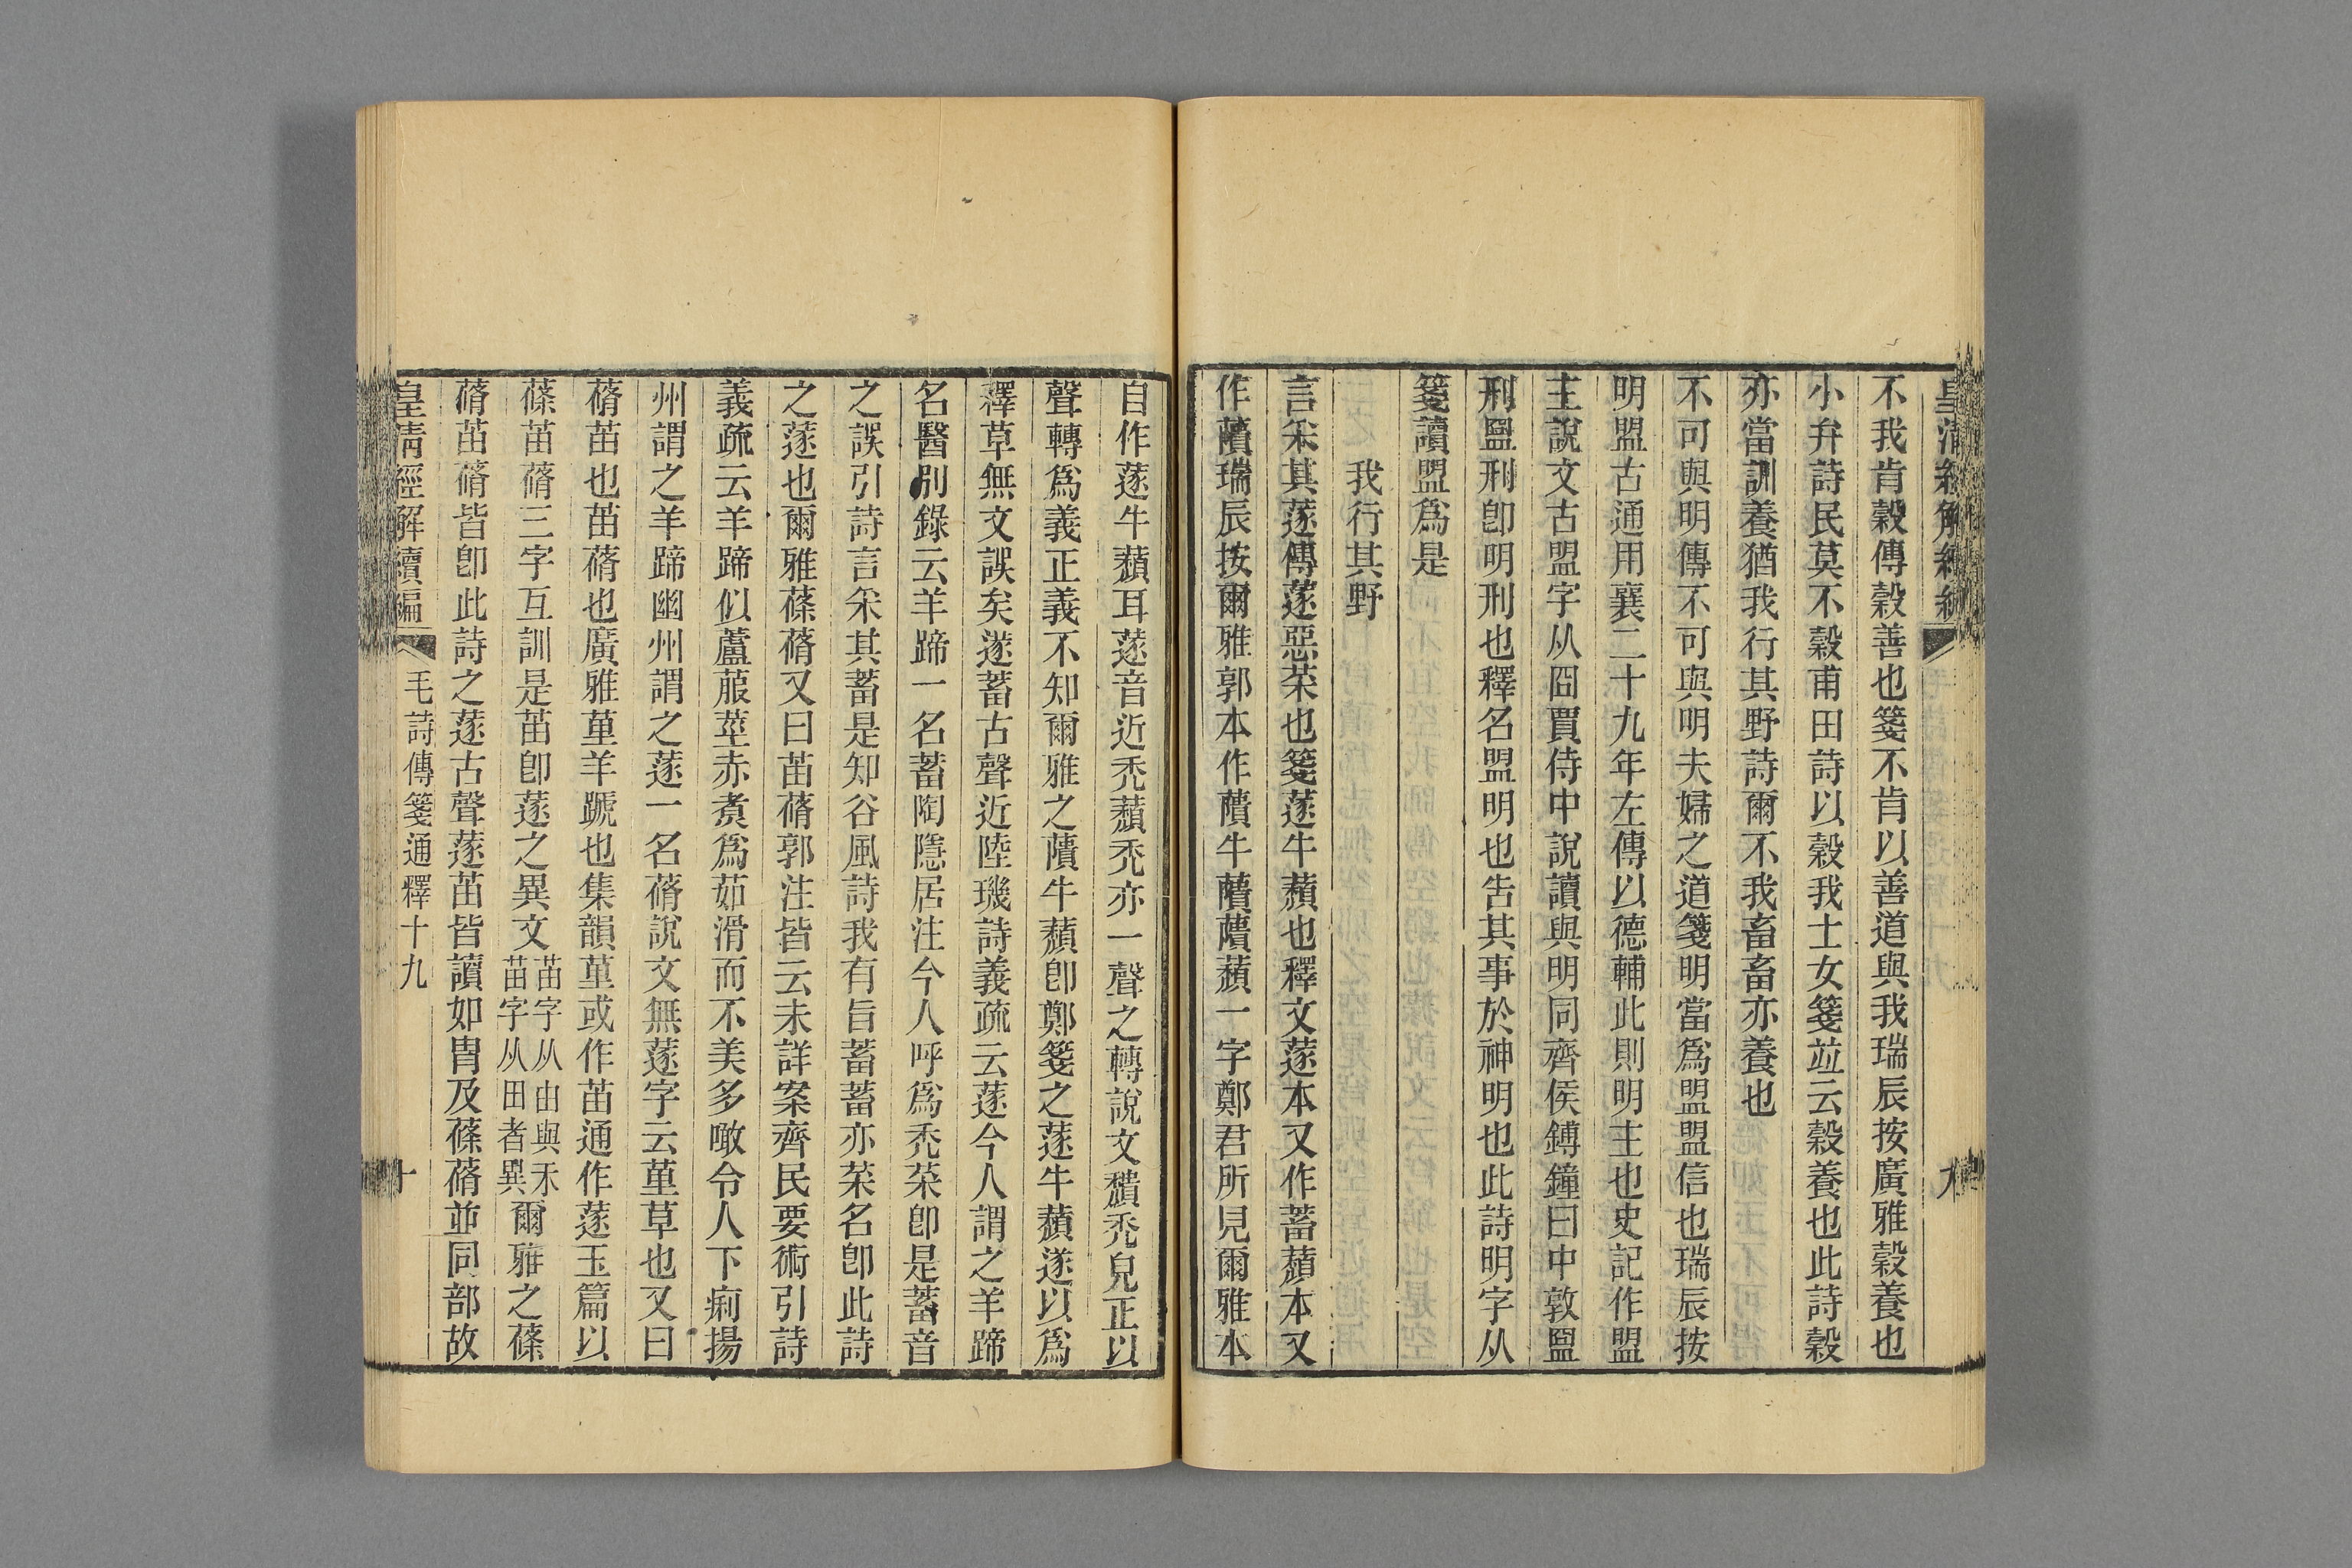 不我肯穀傳穀善也箋不肯以善道與我瑞辰按廣雅穀養也
小弁詩民莫不穀甫田詩以穀我士女箋竝云穀養也此詩穀
亦當訓養猶我行其野詩爾不我畜畜亦養也
不可與明傳不可與明夫婦之道箋明當爲盟盟信也瑞辰按
明盟古通用襄二十九年左傳以德輔此則明主也史記作盟
主說文古盟字从囧賈侍中說讀與明同齊侯鎛鐘曰中敦盟
刑盟刑卽明刑也釋名盟明也告其事於神明也此詩明字从
箋讀盟爲是
我行其野
言采其蓫傳蓫惡菜也箋蓫牛蘈也釋文蓫本又作蓄蘈本又
作藬瑞辰按爾雅郭本作藬牛蘈藬蘈一字鄭君所見爾雅本
自作蓫牛蘈耳蓫音近禿蘈禿亦一聲之轉說文穨禿皃正以
聲轉爲義正義不知爾雅之藬牛蘈卽鄭箋之蓫牛蘈遂以爲
釋草無文誤矣蓫蓄古聲近陸璣詩義疏云蓫今人謂之羊蹄
名醫別錄云羊蹄一名蓄陶隱居注今人呼爲禿菜卽是蓄音
之誤引詩言采其蓄是知谷風詩我有旨蓄蓄亦菜名卽此詩
之蓫也爾雅蓧蓨又曰苗蓨郭注皆云未詳案齊民要術引詩
義疏云羊蹄似蘆菔莖赤煑爲茹滑而不美多噉令人下痢揚
州謂之羊蹄幽州謂之蓫一名蓨說文無蓫字云堇草也又曰
蓨苗也苗蓨也廣雅堇羊蹏也集韻堇或作苗通作蓫玉篇以
蓧苗蓨三字互訓是苗卽蓫之異文苗字从由與禾苗字从田者異爾雅之蓧
蓨苗蓨皆卽此詩之蓫古聲蓫苗皆讀如胄及蓧蓨並同部故
皇清經解續編 毛詩傳箋通釋十九 十